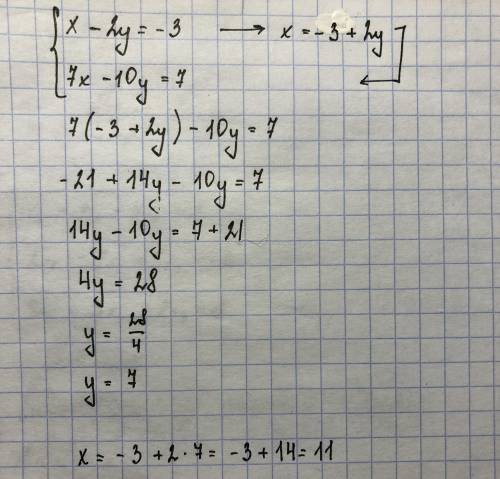 x - 2y = -3 → x = -3 + 2y
7x - 10y = 7
7(-3 + 2y) - 10y = 7
-21 + 14y - 10y = 7
14y - 10y = 7 + 21
4y = 28
y = 28/4
y = 7
x = -3 + 2·7 = -3 + 14 = 11